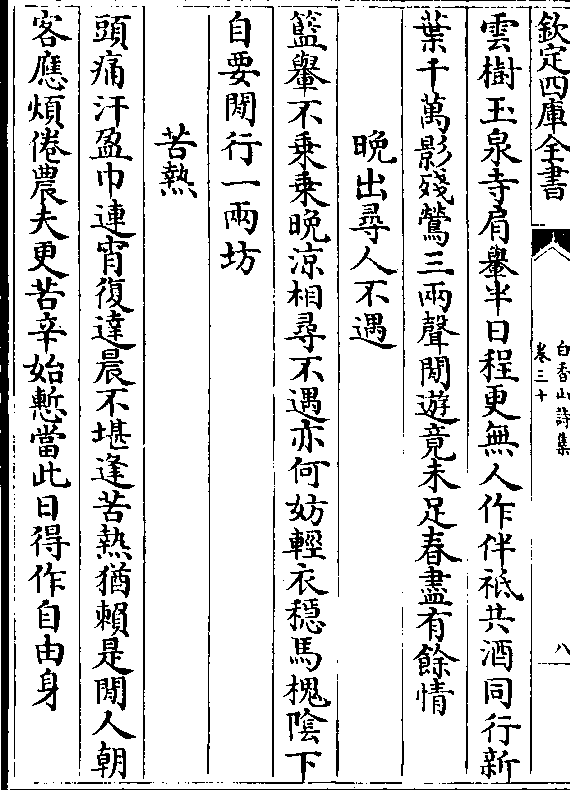 欽定四庫全書
白香山詩集
卷三十
八
雲樹玉泉寺肩轝半日程更無人作伴祗共酒同行新
葉千萬影殘鶯三兩聲閒遊竟未足春盡有餘情
晚出尋人不遇
籃轝不乗乗晚凉相尋不遇亦何妨輕衣穏馬槐隂下
自要閒行一兩坊
苦熱
頭痛汗盈巾連宵復達晨不堪逢苦熱猶賴是閒人朝
客應煩倦農夫更苦辛始慙當此日得作自由身